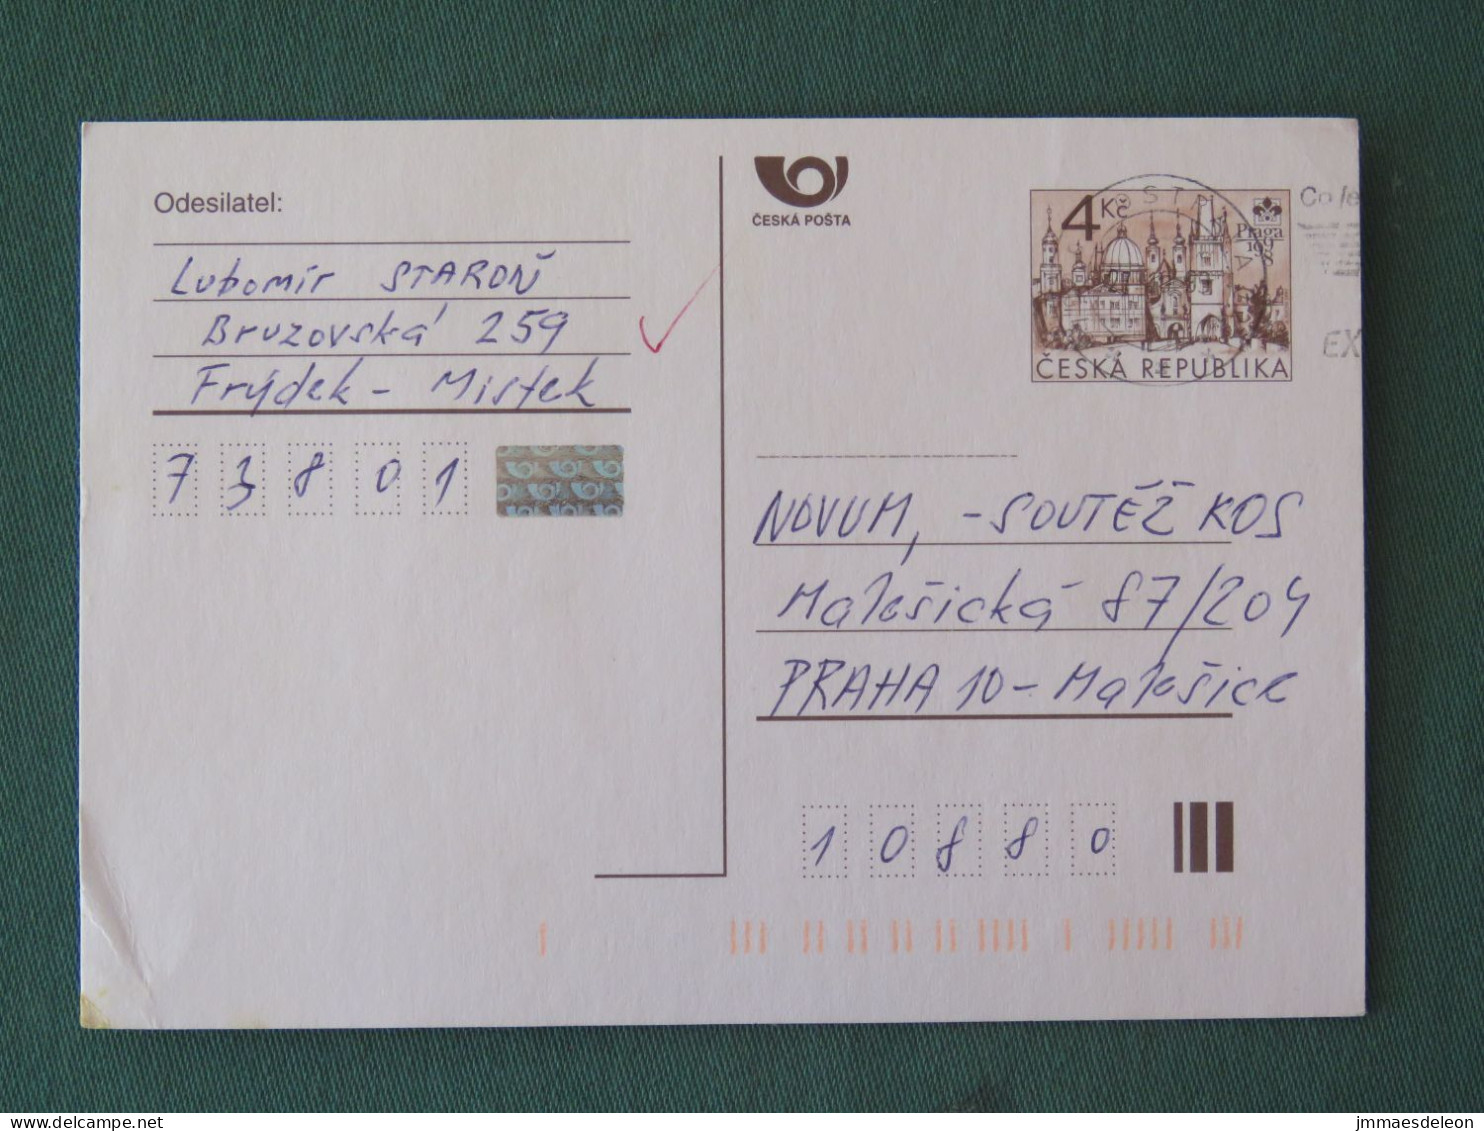 Odesilatel:
Lubomír STAROŇ
Bruzovská 259
Frýdek - Místek
73801
ČESKÁ POŠTA
4 Kč
Praga
1998
ČESKÁ REPUBLIKA
EX
NOVUM, - SOUTĚŽ KOS
Malešická 87/204
PRAHA 10 - Malešice
10880
jmmaesdeleon